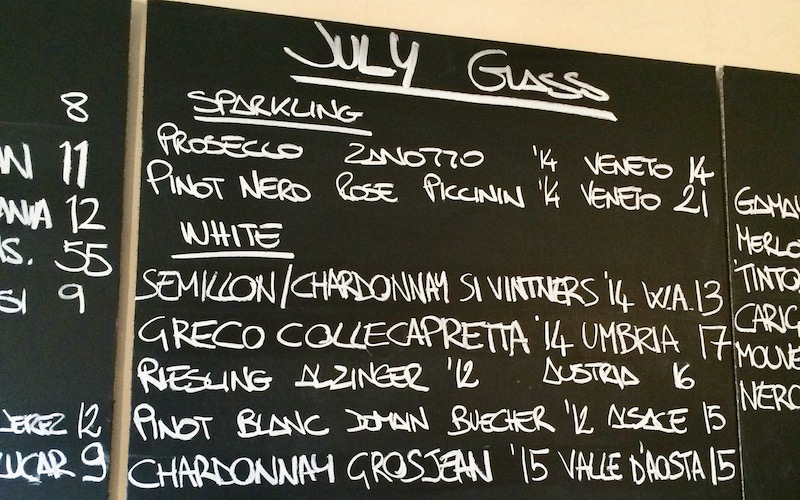 8
11
12
55
9
JEREZ 12
9
JULY GLASS
SPARKLING
PROSECCO ZANOTTO '14 VENETO 14
PINOT NERO ROSE PICCININ '14 VENETO 21
WHITE
SEMILLON/CHARDONNAY SI VINTNERS '14 W.A. 13
GRECO COLLECAPRETTA '14 UMBRIA 17
RIESLING ALZINGER '12 AUSTRIA 16
PINOT BLANC DOMAIN BUECHER '12 ALSACE 15
CHARDONNAY GROSJEAN '15 VALLE D'AOSTA 15
GAMAY
MERLO
TINTO
CARIG
MOUVE
NERO